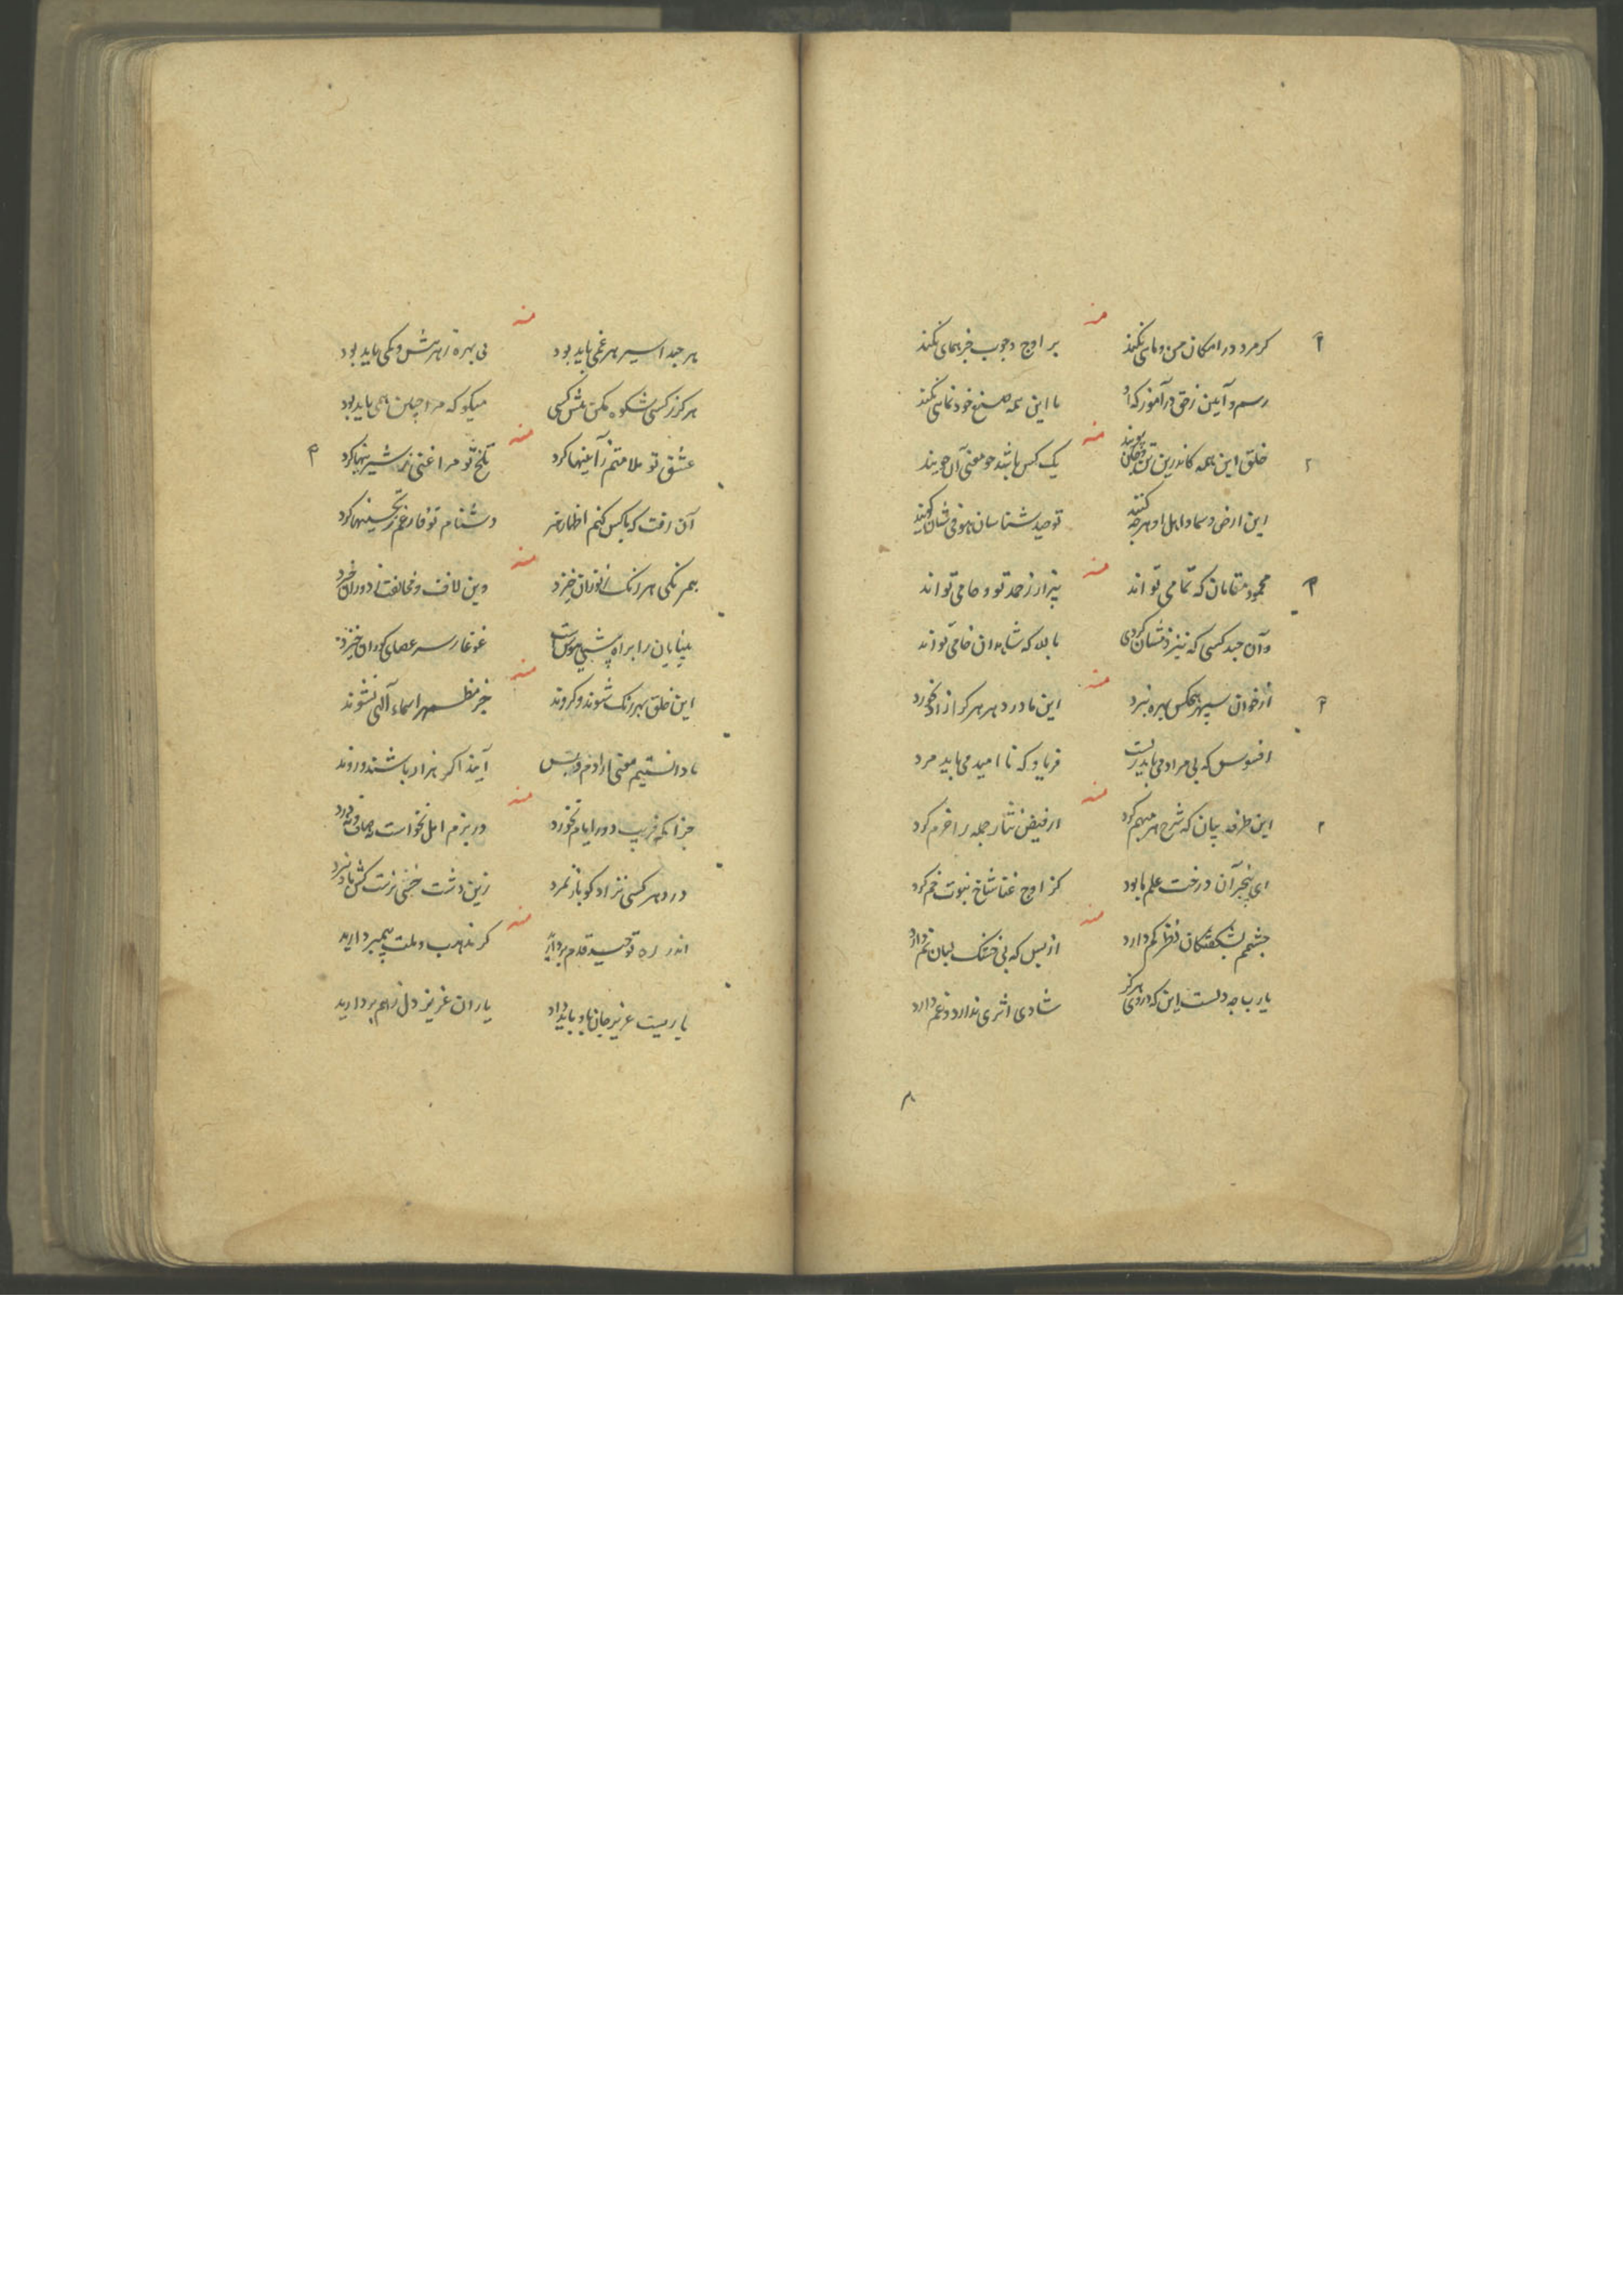 منه
کر مرد در امکان من و مائی نکند
بر اوج وجوب جز همای نکند
رسم و آیین ز حق درآموز که او
با این همه صنع خود نمائی نکند
منه
خلق این همه کاندرین
یک کس باشد چو معنی آن جویند
این ارض و سما و اهل او هر چه کنند
توحید شناسان
منه
محمود مقامان که تمامی تو اند
بیزار ز حمد تو و حامی تو اند
وآن جند کسی که نیز ذمشان کردی
بالله که شاهدان خامی تو اند
منه
از خوان سپهر هیچکس بهره نبرد
این مادر دهر هر کرا زاد بخورد
افسوس که بی مراد می باید زیست
فریاد که نا امید می باید مرد
منه
این طرفه بیان که شرح هر مبهم کرد
از فیض نثار جمله را خرم کرد
ای بیخبر آن درخت علم ما بود
کز اوج غنا شاخ نبوت خم کرد
منه
چشمم بشکفتکان نظر کم دارد
از بس که بی خشک لبان نم دارد
یارب چه دلست این که در وی هرگز
شادی اثری ندارد و غم دارد
منه
هر چند اسیر هر غمی باید بود
بی بهره ز هر بیش و کمی باید بود
هرگز ز کسی شکوه مکن پیش کسی
میکو که مرا چنین همی باید بود
منه
عشق تو ملامتم ز آیینها کرد
تلخ تو مرا غنی ز شیرینیها کرد
آن رفت که با کس کنم اظهار هنر
دشنام تو فارغم ز تحسینها کرد
منه
همرنکی هر رنک
وین لاف و مخالفت ز دوران خیزد
بینایان را براه
غوغا ز سر عصای کوران خیزد
منه
این خلق بهر رنک شوند و کروند
جز مظهر اسماء الهی نشوند
ما دانستیم معنی آرا دم و بس
آیند اکر هزار باشند و روند
منه
جز آنکه فریب دور ایام نخورد
در بزم امل نخواست
در دهر کسی نزاد کو باز نمرد
زین دشت خسی نرست کش باد نبرد
منه
اندر ره توحید قدم بردارید
کر مذهب و ملت پیمبر دارید
یاریست عزیز جان باو باید داد
یاران عزیز دل ز هم بردارید